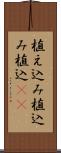 植え込み植込
み植込((